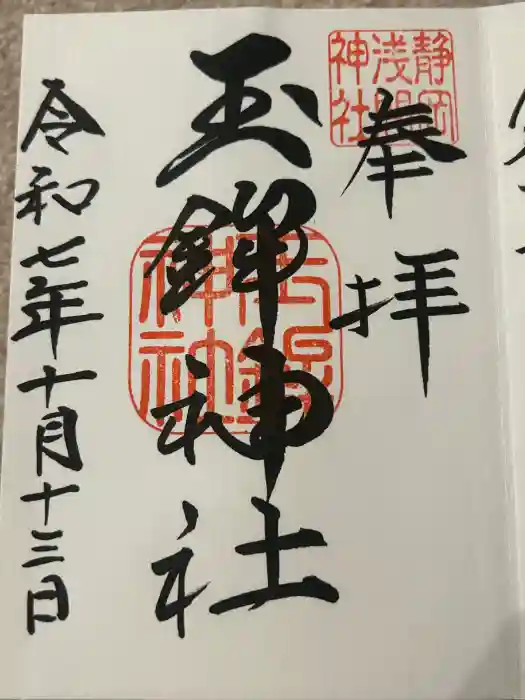 奉拝
静岡
浅間
神社
玉鉾神社
玉鉾
神社
令和七年十月十三日